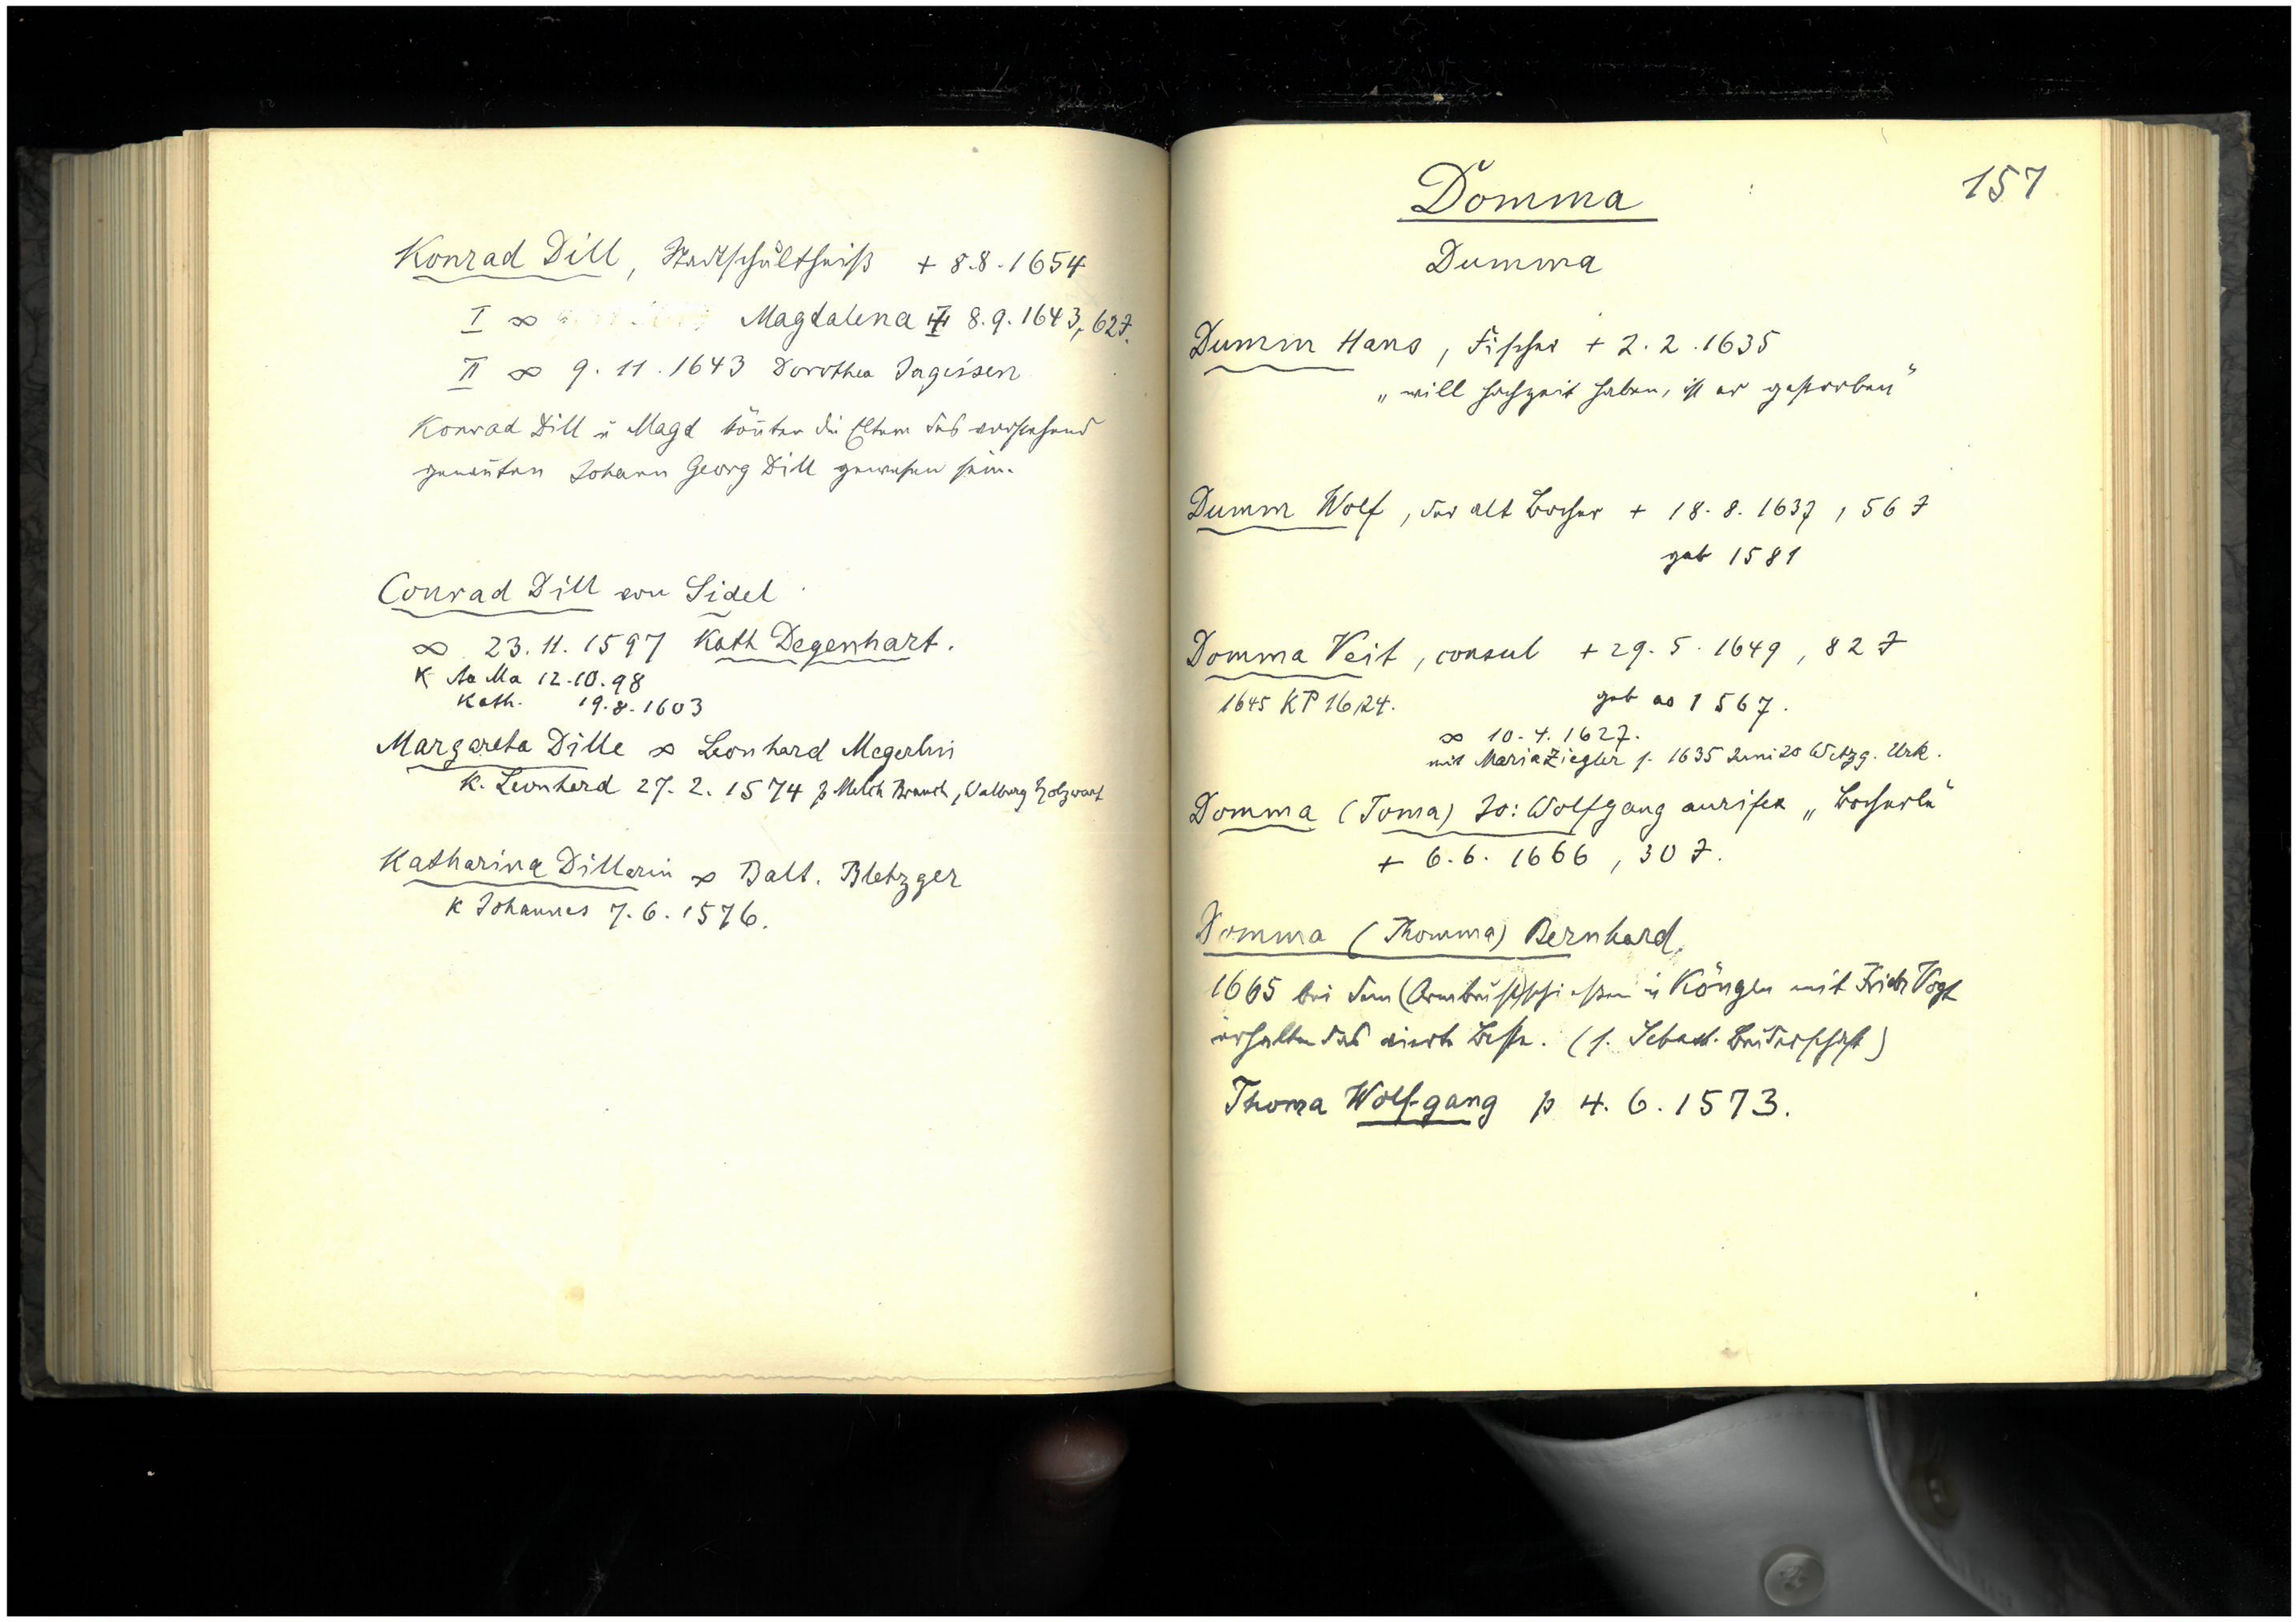 Konrad Dill, Stadtschultheiß + 8.8.1654
I ∞ Magdalena + 8.9.1643, 62 J.
II ∞ 9.11.1643 Dorothea Ingeissen
Konrad Dill u Magd könten die Eltern des vorstehend
genanten Johann Georg Dill gewesen sein.
Conrad Dill von Sidel
∞ 23.11.1597 Kath Degenhart.
K Aa Ma 12.10.98
Kath. 19.8.1603
Margareta Dille ∞ Leonhard Megerlin
K. Leonhard 27.2.1574 p Melch Brauch, Walburg Holzwart
Katharina Dillerin ∞ Balt. Bletzger
K Johannes 7.6.1576.
157
Domma
Dumma
Dumm Hans, Fischer + 2.2.1635
„will Hochzeit haben, ist er gestorben"
Dumm Wolf, der alt + 18.8.1637, 56 J
geb 1581
Domma Veit, consul + 29.5.1649, 82 J
1645 KP 16,24.
geb ao 1567.
∞ 10.4.1627.
mit Maria Ziegler s. 1635 Juni 20 Wetzg. Urk.
Domma (Toma) Jo: Wolfgang aurifex
+ 6.6.1666, 30 J.
Domma (Thomma) Bernhard,
1665 bei dem (Armbrust)schießen in Köngen mit Fridr Vogt
erhalten das vierte Beste. (s. Sebast. Bruderschaft)
Thoma Wolfgang p 4.6.1573.